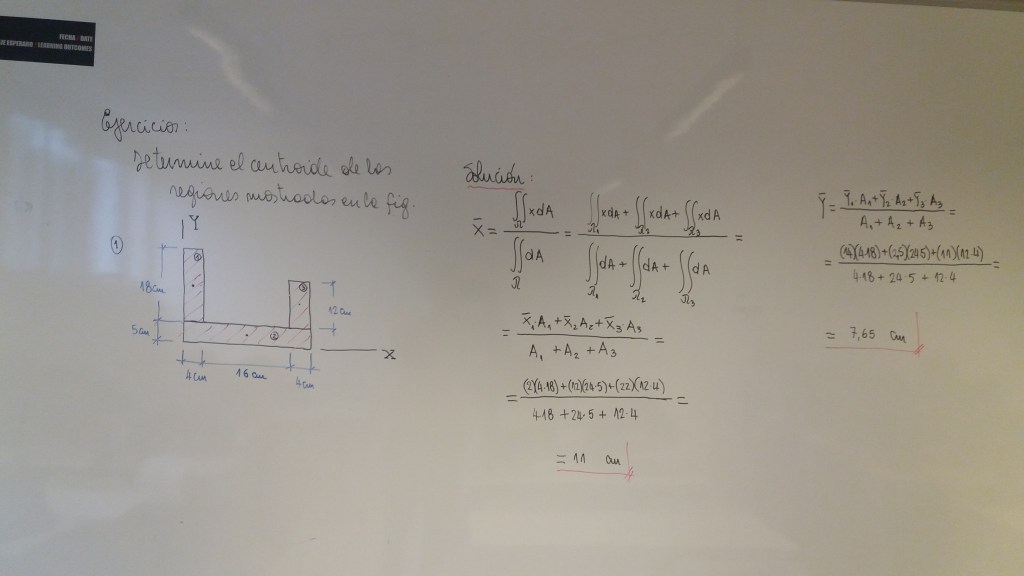 FECHA / DATE
JE ESPERADO / LEARNING OUTCOMES
Ejercicios:
Determine el centroide de las
regiones mostradas en la fig.
①
Y
18cm
5cm
①
②
③
12cm
X
4cm
16cm
4cm
Solución:
X̄ = ∬_Ω xdA / ∬_Ω dA = (∬_Ω₁ xdA + ∬_Ω₂ xdA + ∬_Ω₃ xdA) / (∬_Ω₁ dA + ∬_Ω₂ dA + ∬_Ω₃ dA) =
= (X̄₁·A₁ + X̄₂A₂ + X̄₃·A₃) / (A₁ + A₂ + A₃) =
= ((2)(4·18) + (12)(24·5) + (22)(12·4)) / (4·18 + 24·5 + 12·4) =
= 11 cm
Ȳ = (Ȳ₁·A₁ + Ȳ₂·A₂ + Ȳ₃·A₃) / (A₁ + A₂ + A₃) =
= ((14)(4·18) + (2,5)(24·5) + (11)(12·4)) / (4·18 + 24·5 + 12·4) =
= 7,65 cm